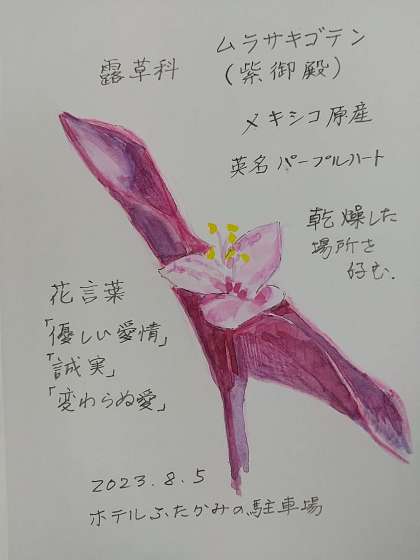 露草科
ムラサキゴテン
(紫御殿)
メキシコ原産
英名パープルハート
乾燥した
場所を
好む.
花言葉
「優しい愛情」
「誠実」
「変わらぬ愛」
2023.8.5
ホテルふたかみの駐車場